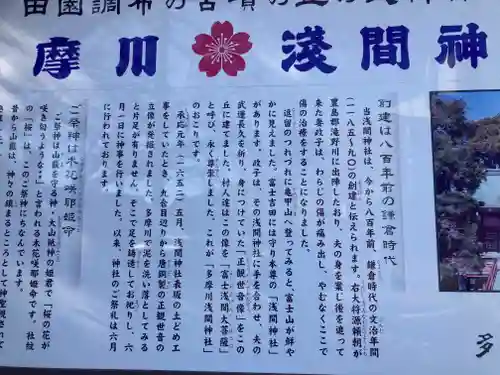 田園調布の古墳の上の
摩川浅間神
創建は八百年前の鎌倉時代
当浅間神社は、今から八百年前、鎌倉時代の文治年間
(一一八五〜九〇)の創建と伝えられます。右大将源頼朝が
豊島郡滝野川に出陣したおり、夫の身を案じ後を追って
来た妻政子は、わらじの傷が痛み出し、やむなくここで
傷の治療をすることになりました。
逗留のつれづれに亀甲山へ登ってみると、富士山が鮮や
かに見えました。富士吉田には守り本尊の「浅間神社」
があります。政子は、その浅間神社に手を合わせ、夫の
武運長久を祈り、身につけていた「正観世音像」をこの
丘に建てました。村人達はこの像を「富士浅間大菩薩」
と呼び、永く尊崇しました。これが「多摩川浅間神社」
のおこりです。
承応元年(一六五二)五月、浅間神社表坂の土どめ工
事をしていたとき、九合目辺りから唐銅製の正観世音の
立像が発掘されました。多摩川で泥を洗い落としてみる
と片足が有りません。そこで足を鋳造してお祀りし、六
月一日に神事を行いました。以来、神社のご祭礼は六月
に行われております。
ご祭神は木花咲耶姫命
ご祭神は山霊を守る神・大山祇神の姫君で「桜の花が
咲き匂うような‥」と言われる木花咲耶姫命です。社紋
の「桜」は、このご祭神にちなんでいます。
昔から山霊は、神々の鎮まるところとして神聖視されて
多